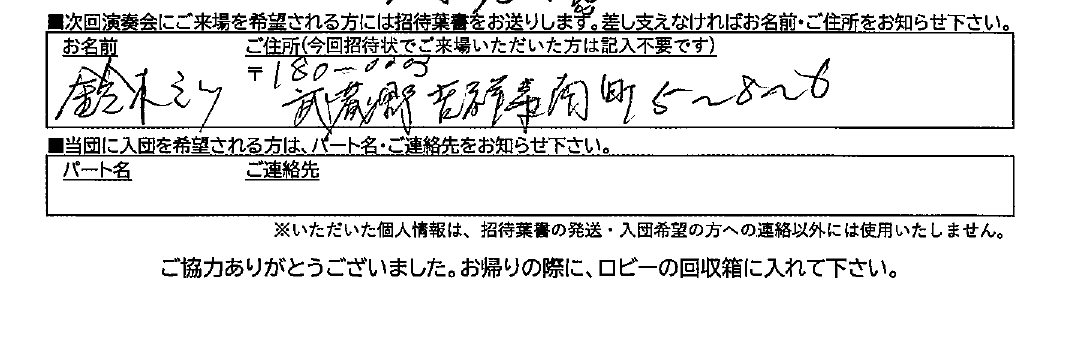 ■次回演奏会にご来場を希望される方には招待葉書をお送りします。差し支えなければお名前・ご住所をお知らせ下さい。
お名前 ご住所(今回招待状でご来場いただいた方は記入不要です)
〒180-0003
鈴木 吉祥寺南町5~8~6
■当団に入団を希望される方は、パート名・ご連絡先をお知らせ下さい。
パート名 ご連絡先
※いただいた個人情報は、招待葉書の発送・入団希望の方への連絡以外には使用いたしません。
ご協力ありがとうございました。お帰りの際に、ロビーの回収箱に入れて下さい。